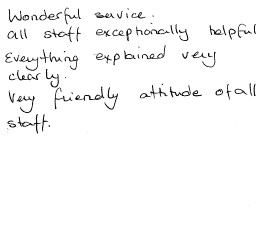 Wonderful service.
all staff exceptionally helpful
Everything explained very
clearly.
Very friendly attitude of all
staff.